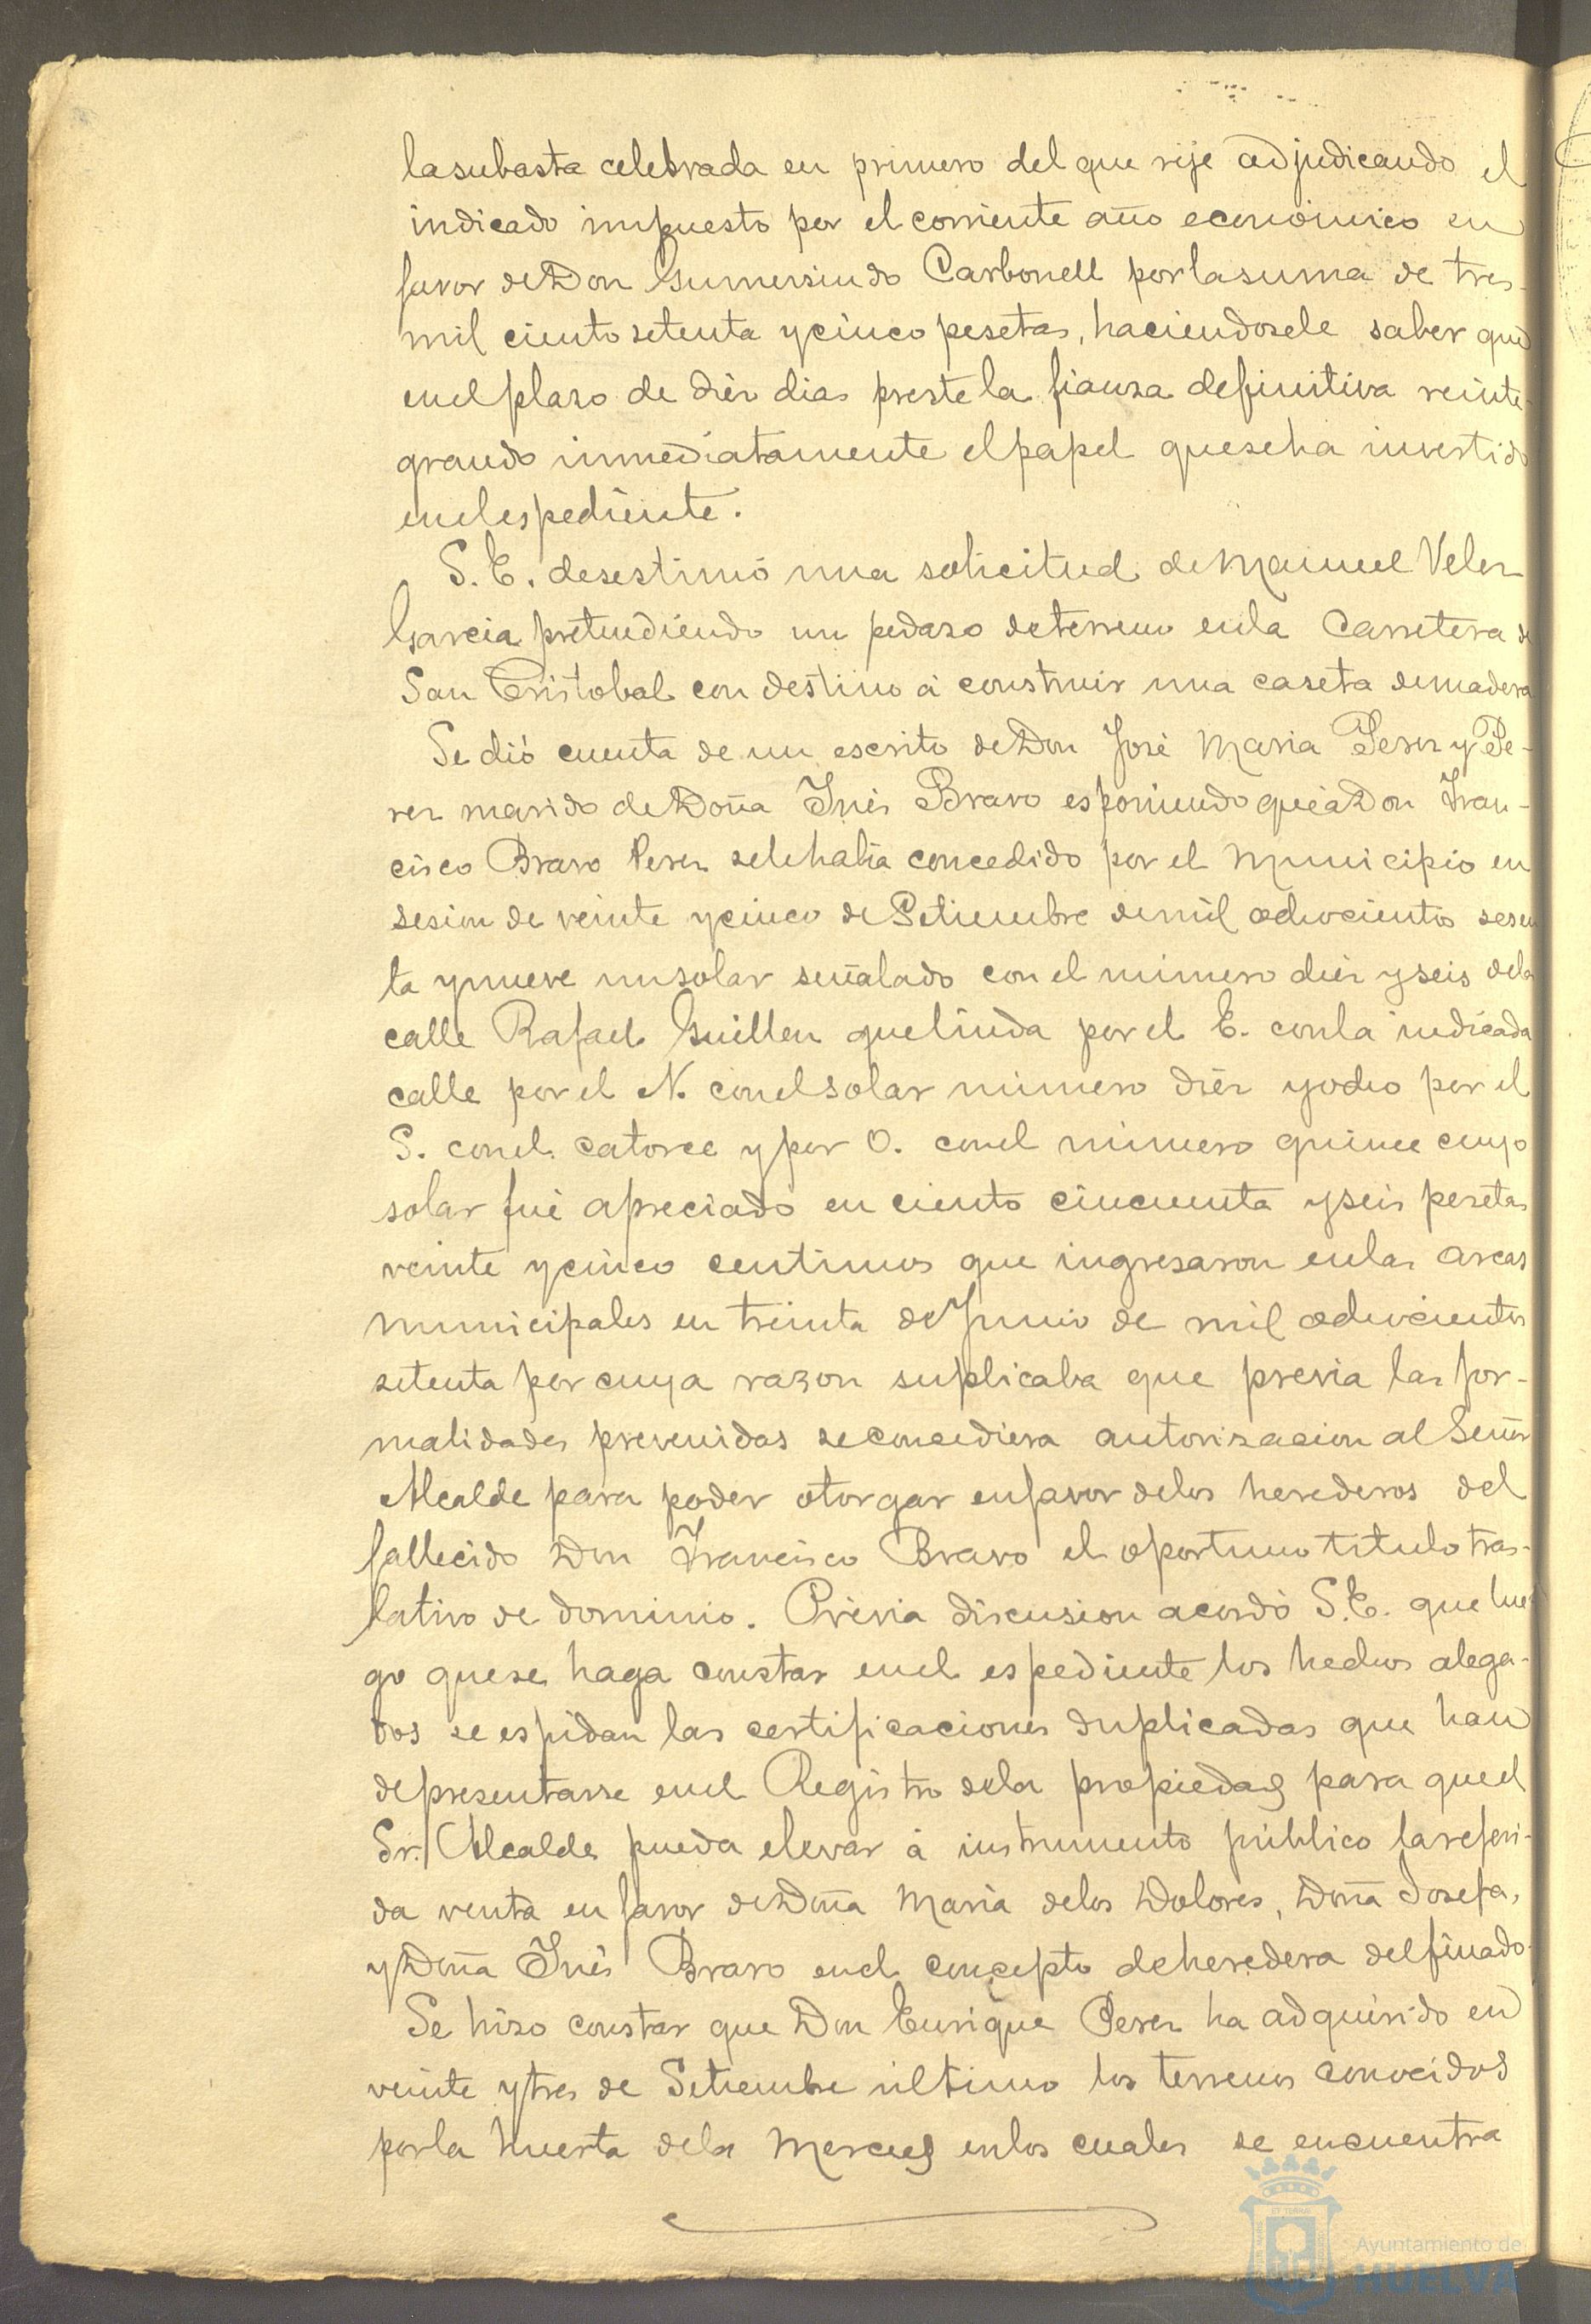 la subasta celebrada en primero del que rije adjudicando el
indicado impuesto por el corriente año económico en
favor de Don Gumersindo Carbonell por la suma de tres
mil ciento setenta y cinco pesetas, haciendosele saber que
en el plazo de diéz dias preste la fianza definitiva reinte-
grando inmediatamente el papel que se ha invertido
en el espediente.
S. E. desestimó una solicitud de Manuel Velez
Garcia pretendiendo un pedazo de terreno en la Carretera de
San Cristobal con destino á construir una caseta de madera
Se dió cuenta de un escrito de Don José Maria Perez y Pe-
rez marido de Doña Inés Bravo esponiendo que á Don Fran-
cisco Bravo Perez se le habia concedido por el Municipio en
sesion de veinte y cinco de Setiembre de mil ochocientos sesen
ta y nueve un solar señalado con el número diéz y seis de la
calle Rafael Guillen que linda por el E. con la indicada
calle por el N. con el solar número diéz y ocho por el
S. con el catorce y por O. con el número quince cuyo
solar fué apreciado en ciento cincuenta y seis pesetas
veinte y cinco centimos que ingresaron en las arcas
municipales en treinta de Junio de mil ochocientos
setenta por cuya razon suplicaba que previa las for-
malidades prevenidas se concediera autorizacion al Señor
Alcalde para poder otorgar en favor de los herederos del
fallecido Don Francisco Bravo el oportuno titulo tras-
lativo de dominio. Prévia discusion acordó S.E. que lue
go que se haga constar en el espediente los hechos alega-
dos se espidan las certificaciones duplicadas que han
de presentarse en el Registro de la propiedad para que el
Sr. Alcalde pueda elevar á instrumento público la referi-
da venta en favor de Doña Maria de los Dolores, Doña Josefa,
y Doña Inés Bravo en el concepto de heredera del finado.
Se hizo constar que Don Enrique Perez ha adquirido en
veinte y tres de Setiembre último los terrenos conocidos
por la huerta de la Merced en los cuales se encuentra
Ayuntamiento de
HUELVA